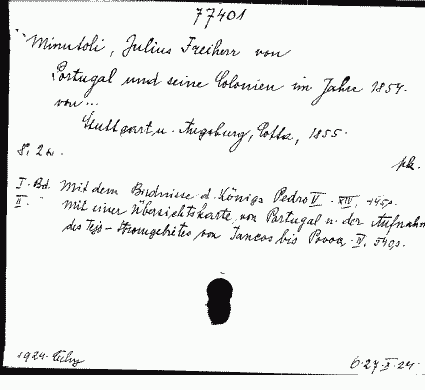 77401
Minutoli, Julius Freiherr von
Portugal und seine Colonien im Jahre 1854.
von...
Stuttgart u. Augsburg, Cotta, 1855.
8, 2 w.
I. Bd. Mit dem Bildnisse d. Königs Pedro V. XIV, 145p.
II. " Mit einer Übersichtskarte von Portugal u. der Aufnahm
des Tejo-Stromgebietes von Tancos bis Povoa. IV, 540p.
1924.
6.27.X.24.